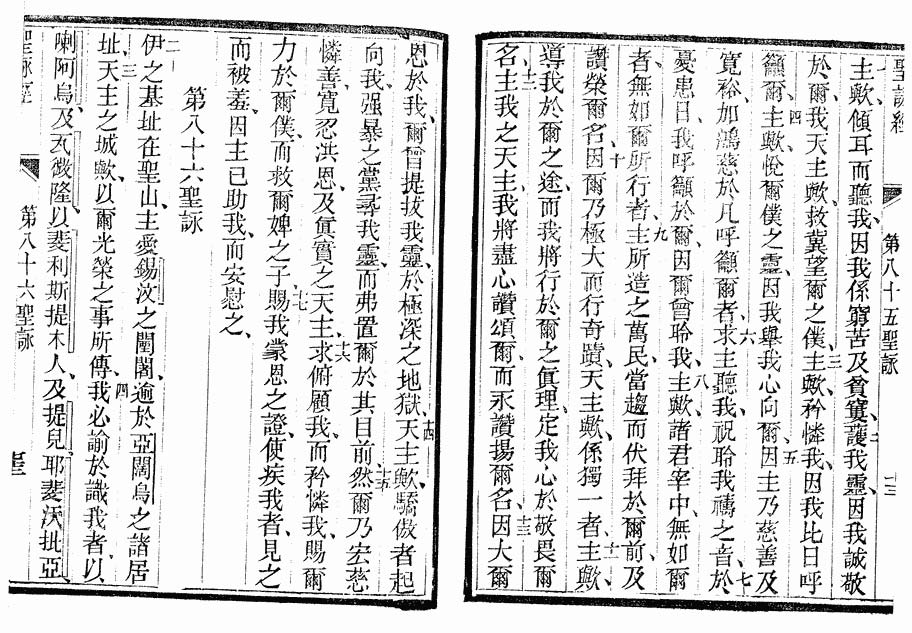 聖詠經
第八十五聖詠
十三
主歟、傾耳而聽我、因我係窮苦及貧窶、二護我靈、因我誠敬
於爾、我天主歟、救冀望爾之僕、三主歟、矜憐我、因我比日呼
籲爾、四主歟、悅爾僕之靈、因我舉我心向爾、五因主乃慈善及
寬裕、加鴻慈於凡呼籲爾者、六求主聽我祝、聆我禱之音、七於
憂患日、我呼籲於爾、因爾曾聆我、八主歟、諸君宰中、無如爾
者、無如爾所行者、九主所造之萬民、當趨而伏拜於爾前、及
讚榮爾名、十因爾乃極大而行奇蹟、天主歟、係獨一者、十一主歟、
導我於爾之途、而我將行於爾之真理、定我心於敬畏爾
名、十二主我之天主、我將盡心讚頌爾、而永讚揚爾名、十三因大爾
恩於我、爾曾提拔我靈、於極深之地獄、十四天主歟、驕傲者起
向我、强暴之黨尋我靈、而弗置爾於其目前、十五然爾乃宏慈
憐善寬忍洪恩、及眞實之天主、十六求俯顧我、而矜憐我、賜爾
力於爾僕、而救爾婢之子、十七賜我蒙恩之證、使疾我者、見之
而被羞、因主已助我、而安慰之、
第八十六聖詠
伊之基址在聖山、二主愛錫汶之闉闍、逾於亞闊烏之諸居
址、三天主之城歟、以爾光榮之事所傳、四我必諭於識我者、以
喇阿烏、及瓦微隆、以斐利斯提木人、及提兒、耶斐沃批亞、
聖詠經
第八十六聖詠
聖